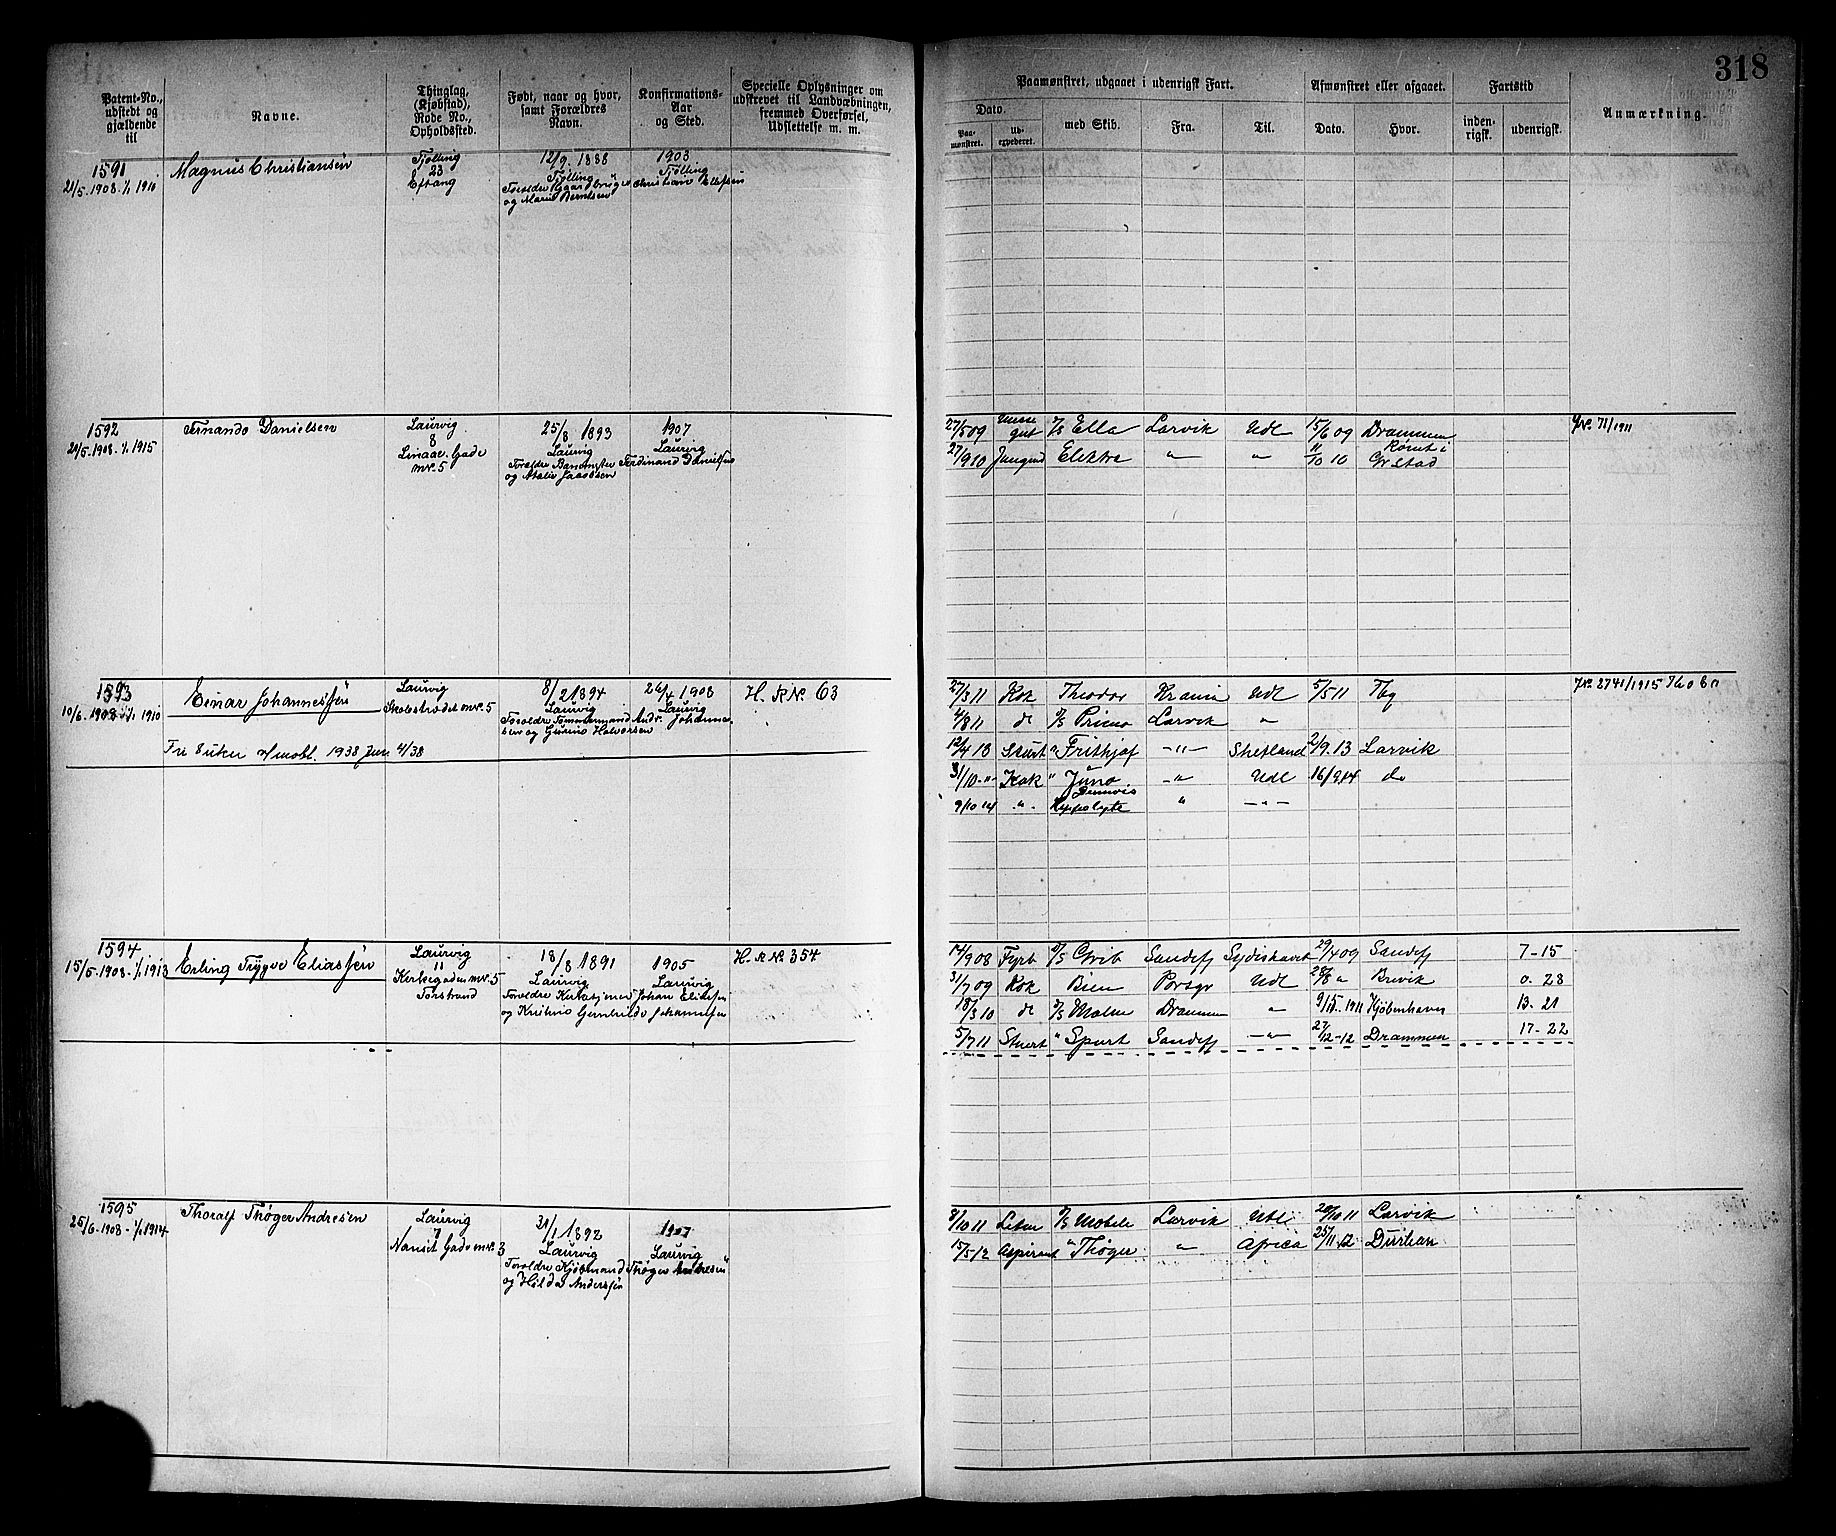 318
Patent-No., udstedt og gjældende til
Navne.
Thinglag, (Kjøbstad), Rode No., Opholdssted.
Født, naar og hvor, samt Forældres Navn.
Konfirmations-Aar og Sted.
Specielle Oplysninger om udskrevet til Landværningen, fremmed Overførsel, Udslettelse m. m.
Paamønstret, udgaaet i udenrigsk Fart.
Afmønstret eller afgaaet.
Fartstid
Anmærkning.
Dato.
Paamønstret.
Udexpederet.
med Skib.
Fra.
Til.
Dato.
Hvor.
indenrigsk.
udenrigsk.
1591
21/5.1908.1/1 1910
Magnus Christiansen
Tjølling
23
Eftang
12/9. 1888
Tjølling
Forældre Gaardbruger Christian Ellefsen
og Maren Berntsen
1903
Tjølling
1592
21/5.1908.1/1.1915
Fernando Danielsen
Laurvig
8
Linaae. Gade
nr. 5
25/8 1893
Laurvig
1907
Laurvig
27/5 09 d/s Ella Larvik Udl 15/6 09 Drammen
27/9 10 Jungmd Elektra " " 11/10 10 Rømt i
Grstad
JNo 71/1911
1593
10/6.1908.1/1 1910
Einar Johannessen
Laurvig
Skolestrædet nr. 5
8/2 1894
Laurvig
Forældre Tømmermand Andr. Johannesen og Gurine Halvorsen
26/4 1908
Laurvig
H. R No. 63
27/3 11 Kok Theodor Krania Udl 5/5 11 Tbg
4/8 11 do d/s Primo Larvik "
12/4 13 Stuert " Frithjof -"- Shetland 2/9.13 Larvik
31/10-"- Kok " Juno -"- Udl 16/9.14 do
9/10 14 " Hyppolyte " -"-
JNo 2741/1915
1594
15/5.1908.1/1.1913
Erling Trygve Eliassen
Laurvig
11
Kirkegaden nr. 5
Torstrand
18/8 1891
Laurvig
1905
Laurvig
H. R No 354
14/9 08 Fyrb d/s Grib Sandefj Sydishavet 29/4 09 Sandefj 7-15
31/7 09 Kok Bien Porsgr Udl 28/8 " Brevik 0.28
18/3 10 do d/s Malm Drammen " 9/15.1911 Kjøbenhavn 13-21
5/7 11 Stuert " Spurt Sandefj -"- 27/12-12 Drammen 17-22
1595
25/6.1908-1/1 1914
Thoralf Thøger Andresen
Laurvig
7
Nansit Gade nr. 3
31/1 1892
Laurvig
Forældre Kjøbmand Thøger Andresen
og Hilda Anderssen
1907
Laurvig
8/10 11 d/s Mobile Larvik Udl 20/10 11 Larvik
15/5-12 Aspirant " Thøger " Africa 25/11 12 Durban